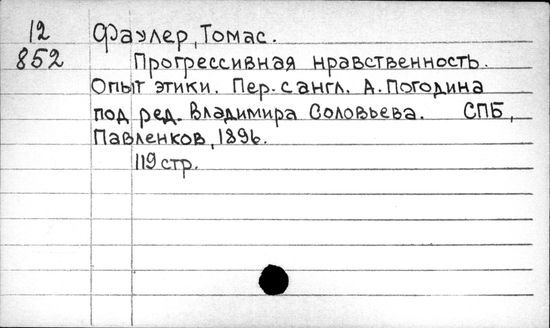 12 Фаулер, Томас.
852 Прогрессивная нравственность.
Опыт этики. Пер. с англ. А. Погодина
под ред. Владимира Соловьева. СПБ,
Павленков, 1896.
119 стр.